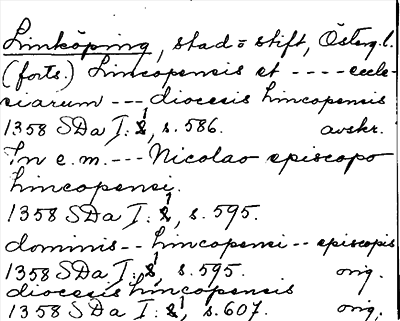 Linköping, stad o stift, Österg.l.
(forts.) Lincopensis et ---- eccle-
siarum --- diocesis lincopensis
1358 SDa I: 1, s. 586. avskr.
In e.m. --- Nicolao episcopo
lincopensi.
1358 SDa I: 1, s. 595.
dominis -- lincopensi -- episcopis
1358 SDa I: 1, s. 595. orig.
diocesis lincopensis
1358 SDa I: 1, s. 607. orig.